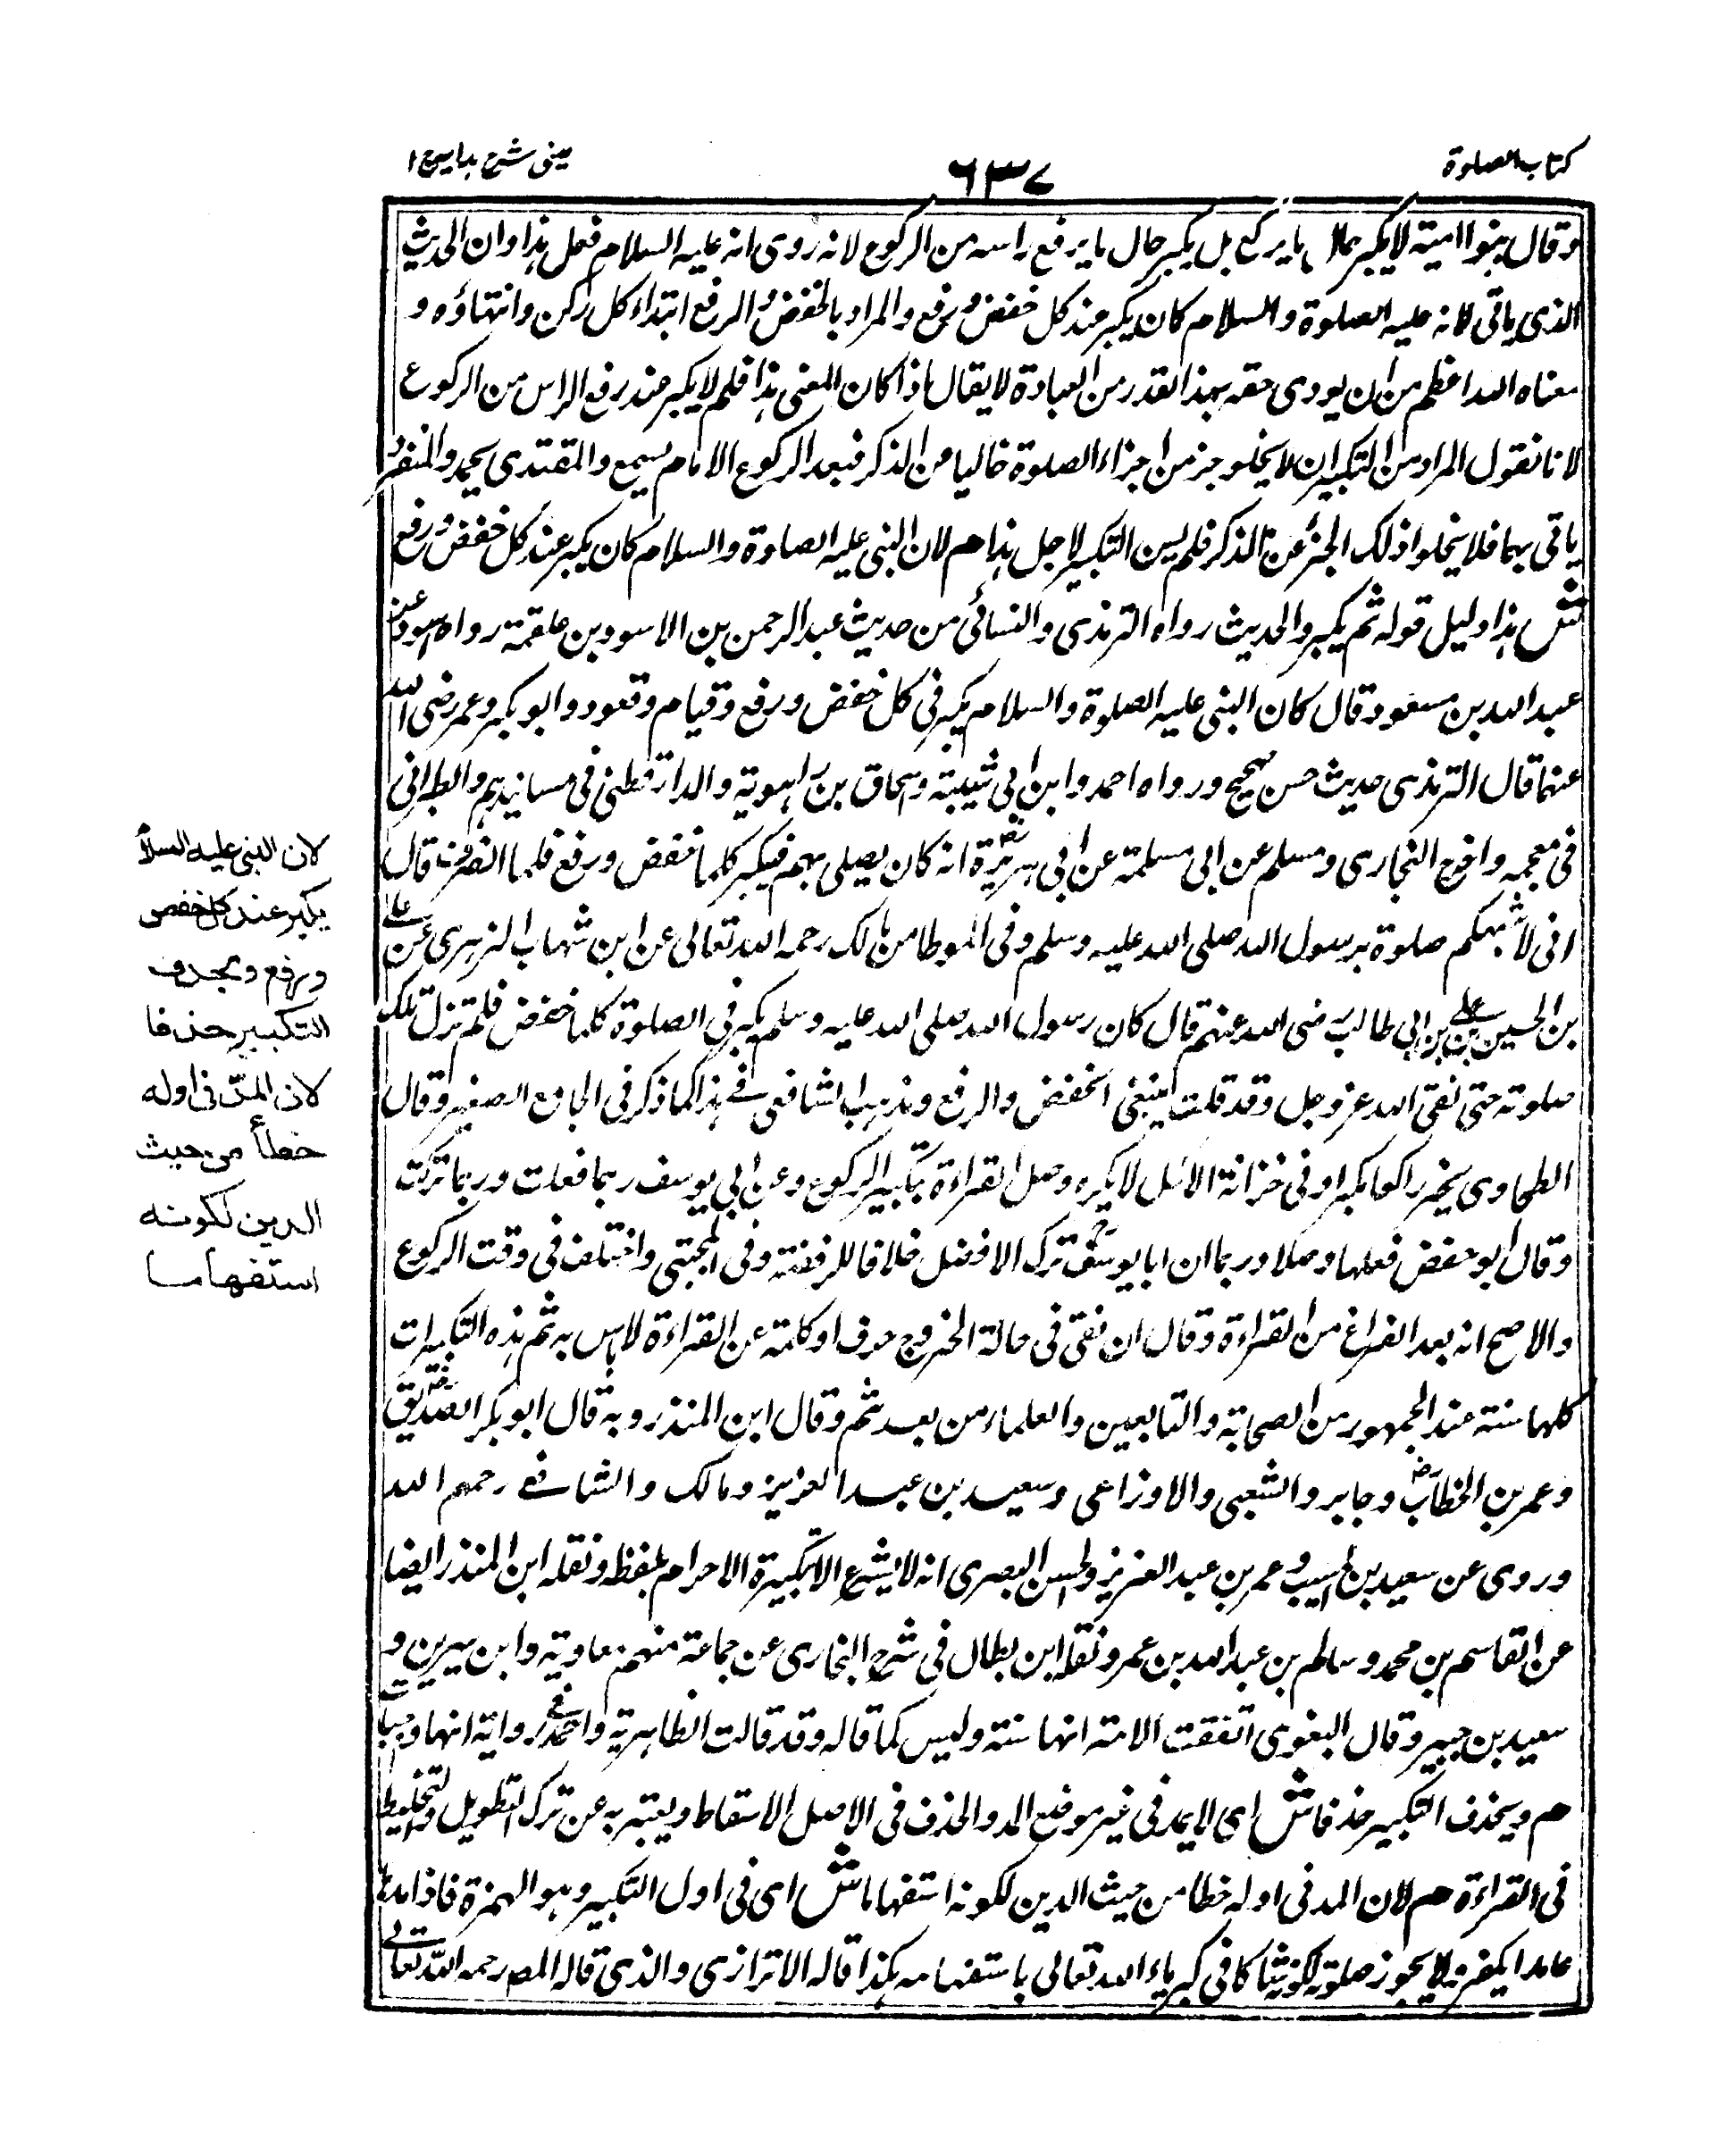 كتاب الصلوة
٦٣٧
عينى شرح هدايه ج ١
وقال بنوا امية لا يكبر حال ما يركع بل يكبر حال ما يرفع راسه من الركوع لانه روى انه عليه السلام فعل هذا وان الحديث
الذى ياتى لانه عليه الصلوة والسلام كان يكبر عند كل خفض ورفع والمراد بالخفض والرفع ابتداء كل ركن وانتهاؤه و
معناه الله اعظم من ان يودى حقه بهذا القدر من العبادة لا يقال اذا كان المعنى هذا فلم لا يكبر عند رفع الراس من الركوع
لانا نقول المراد من التكبير ان لا يخلو جزء من اجزاء الصلوة خاليا من الذكر فبعد الركوع الامام يسمع والمقتدى يحمد والمنفرد
ياتى بهما فلا يخلوا ذلك الجزء عن الذكر فلم يسن التكبير لاجل هذا هم لان النبى عليه الصلوة والسلام كان يكبر عند كل خفض ورفع
ش هذا دليل قوله ثم يكبر والحديث رواه الترمذى والنسائى من حديث عبد الرحمن بن الاسود بن علقمة رواه الاسود عن
عبد الله بن مسعود قال كان النبى عليه الصلوة والسلام يكبر فى كل خفض ورفع وقيام وقعود وابو بكر وعمر رضى الله
عنهما قال الترمذى حديث حسن صحيح ورواه احمد وابن ابى شيبة واسحاق بن راهوية والدارقطنى فى مسانيدهم والطبرانى
فى معجمه واخرج البخارى ومسلم عن ابى سلمة عن ابى هريرة انه كان يصلى بهم فيكبر كلما خفض ورفع فلما انصرف قال
انى لاشبهكم صلوة برسول الله صلى الله عليه وسلم وفى الموطا من مالك رحمه الله تعالى عن ابن شهاب الزهرى عن على
بن الحسين بن على بن ابى طالب رضى الله عنهم قال كان رسول الله صلى الله عليه وسلم يكبر فى الصلوة كلما خفض فلم تزل تلك
صلوته حتى لقى الله عز وجل وقد قلت ينبغى الخفض والرفع ومذهب الشافعى فى هذا كما ذكر فى الجامع الصغير وقال
الطحاوى يخر راكعا مكبرا وفى خزانة الاكمل لا يكره وصل القراءة بتكبير الركوع وعن ابى يوسف ربما فعلت وربما تركت
وقال ابو حفص فعلها وصلا وربما ان ابا يوسف ترك الافضل خلافا للرفضة وفى المجتبى واختلف فى وقت الركوع
والاصح انه بعد الفراغ من القراءة وقال ان بقى فى حالة الخروج حرف او كلمة عن القراءة لا باس به ثم هذه التكبيرات
كلها سنة عند الجمهور من الصحابة والتابعين والعلماء من بعدهم وقال ابن المنذر وبه قال ابو بكر الصديق
وعمر بن الخطاب وجابر والشعبى والاوزاعى وسعيد بن عبد العزيز ومالك والشافعى رحمهم الله
وروى عن سعيد بن المسيب وعمر بن عبد العزيز والحسن البصرى انه لا يشرع الا تكبيرة الاحرام بلفظ ونقله ابن المنذر ايضا
عن القاسم بن محمد وسالم بن عبد الله بن عمر ونقله ابن بطال فى شرح البخارى عن جماعة منهم معاوية وابن سيرين و
سعيد بن جبير وقال البغوى اتفقت الامة انها سنة وليس كما قاله وقد قالت الظاهرية واحمد فى رواية انها واجبات
هم ويحذف التكبير حذفا ش اى لا يمد فى غير موضع المد والحذف فى الاصل الاسقاط ويعتبر به عن ترك التطويل والتخليط
فى القراءة هم لان المد فى اوله خطا من حيث الدين لكونه استفهاما ش اى فى اول التكبير وهو الهمزة فاذا مدها
عامدا يكفر ولا يجوز صلوته لكونه شاكا فى كبرياء الله تعالى باستفهامه هكذا قاله الاترازى والذى قاله المص رحمه الله تعالى
لان النبى عليه السلا
يكبر عند كل خفض
ورفع ويحذف
التكبير حذفا
لان المد فى اوله
خطأ من حيث
الدين لكونه
استفهاما